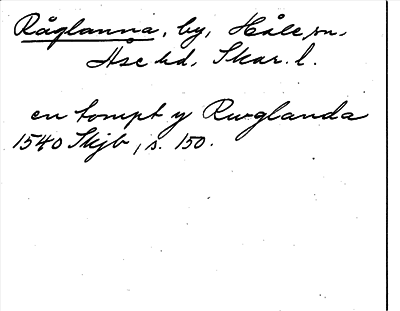 Råglanna, by, Håle sn,
Åse hd, Skar. l.
en tompt y Rwglanda
1540 Skjb, s. 150.